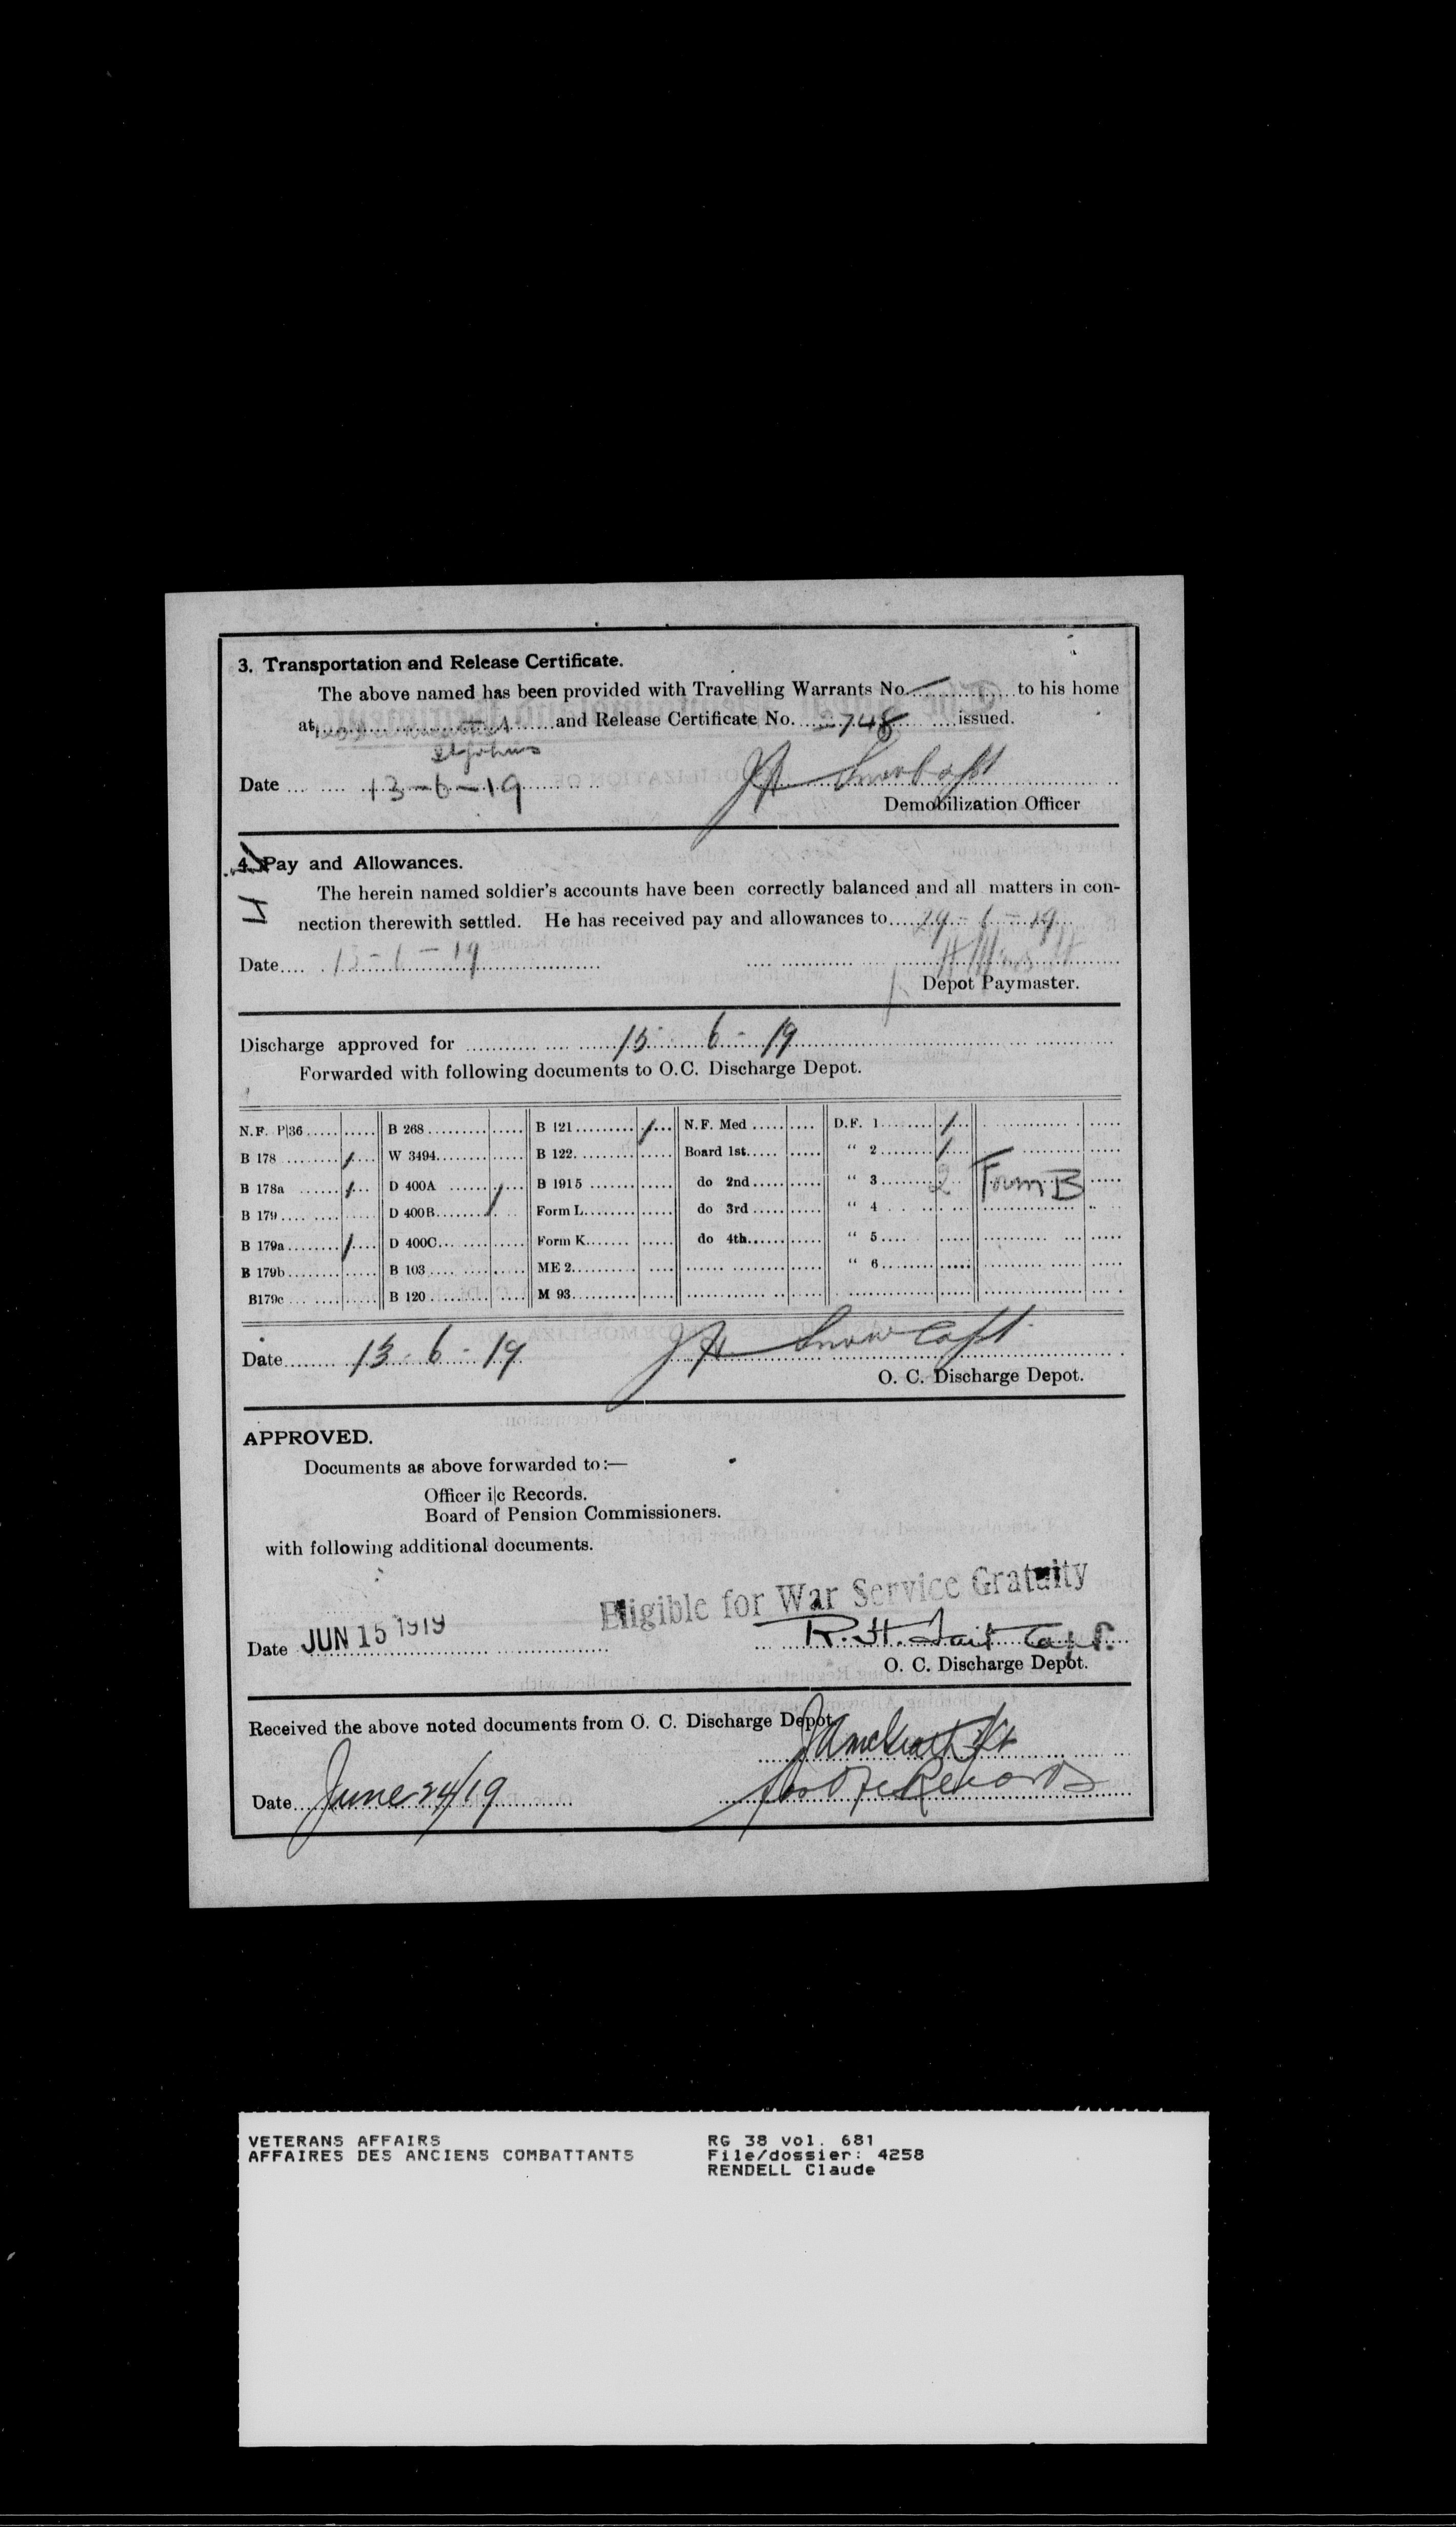 3. Transportation and Release Certificate.
The above named has been provided with Travelling Warrants No. to his home
at and Release Certificate No. 748 issued.
St Johns
Date 13-6-19
Demobilization Officer
4. Pay and Allowances.
The herein named soldier's accounts have been correctly balanced and all matters in con-
nection therewith settled. He has received pay and allowances to 29-6-19
Date 13-6-19
Depot Paymaster.
Discharge approved for 15 6-19
Forwarded with following documents to O.C. Discharge Depot.
N.F. P|36 B 268 B 121 / N.F. Med D.F. 1 /
B 178 / W 3494 B 122 Board 1st " 2 /
B 178a / D 400A B 1915 do 2nd " 3 2 Form B
B 179 D 400B / Form L do 3rd " 4
B 179a / D 400C Form K do 4th " 5
B 179b B 103 ME 2 " 6
B179c B 120 M 93
Date 13-6-19 Snow Capt
O. C. Discharge Depot.
APPROVED.
Documents as above forwarded to:—
Officer i|c Records.
Board of Pension Commissioners.
with following additional documents.
Eligible for War Service Gratuity
Date JUN 15 1919 R.H. Tait Capt.
O. C. Discharge Depot.
Received the above noted documents from O. C. Discharge Depot.
Date June 24/19 Records
VETERANS AFFAIRS
AFFAIRES DES ANCIENS COMBATTANTS
RG 38 vol. 681
File/dossier: 4258
RENDELL Claude